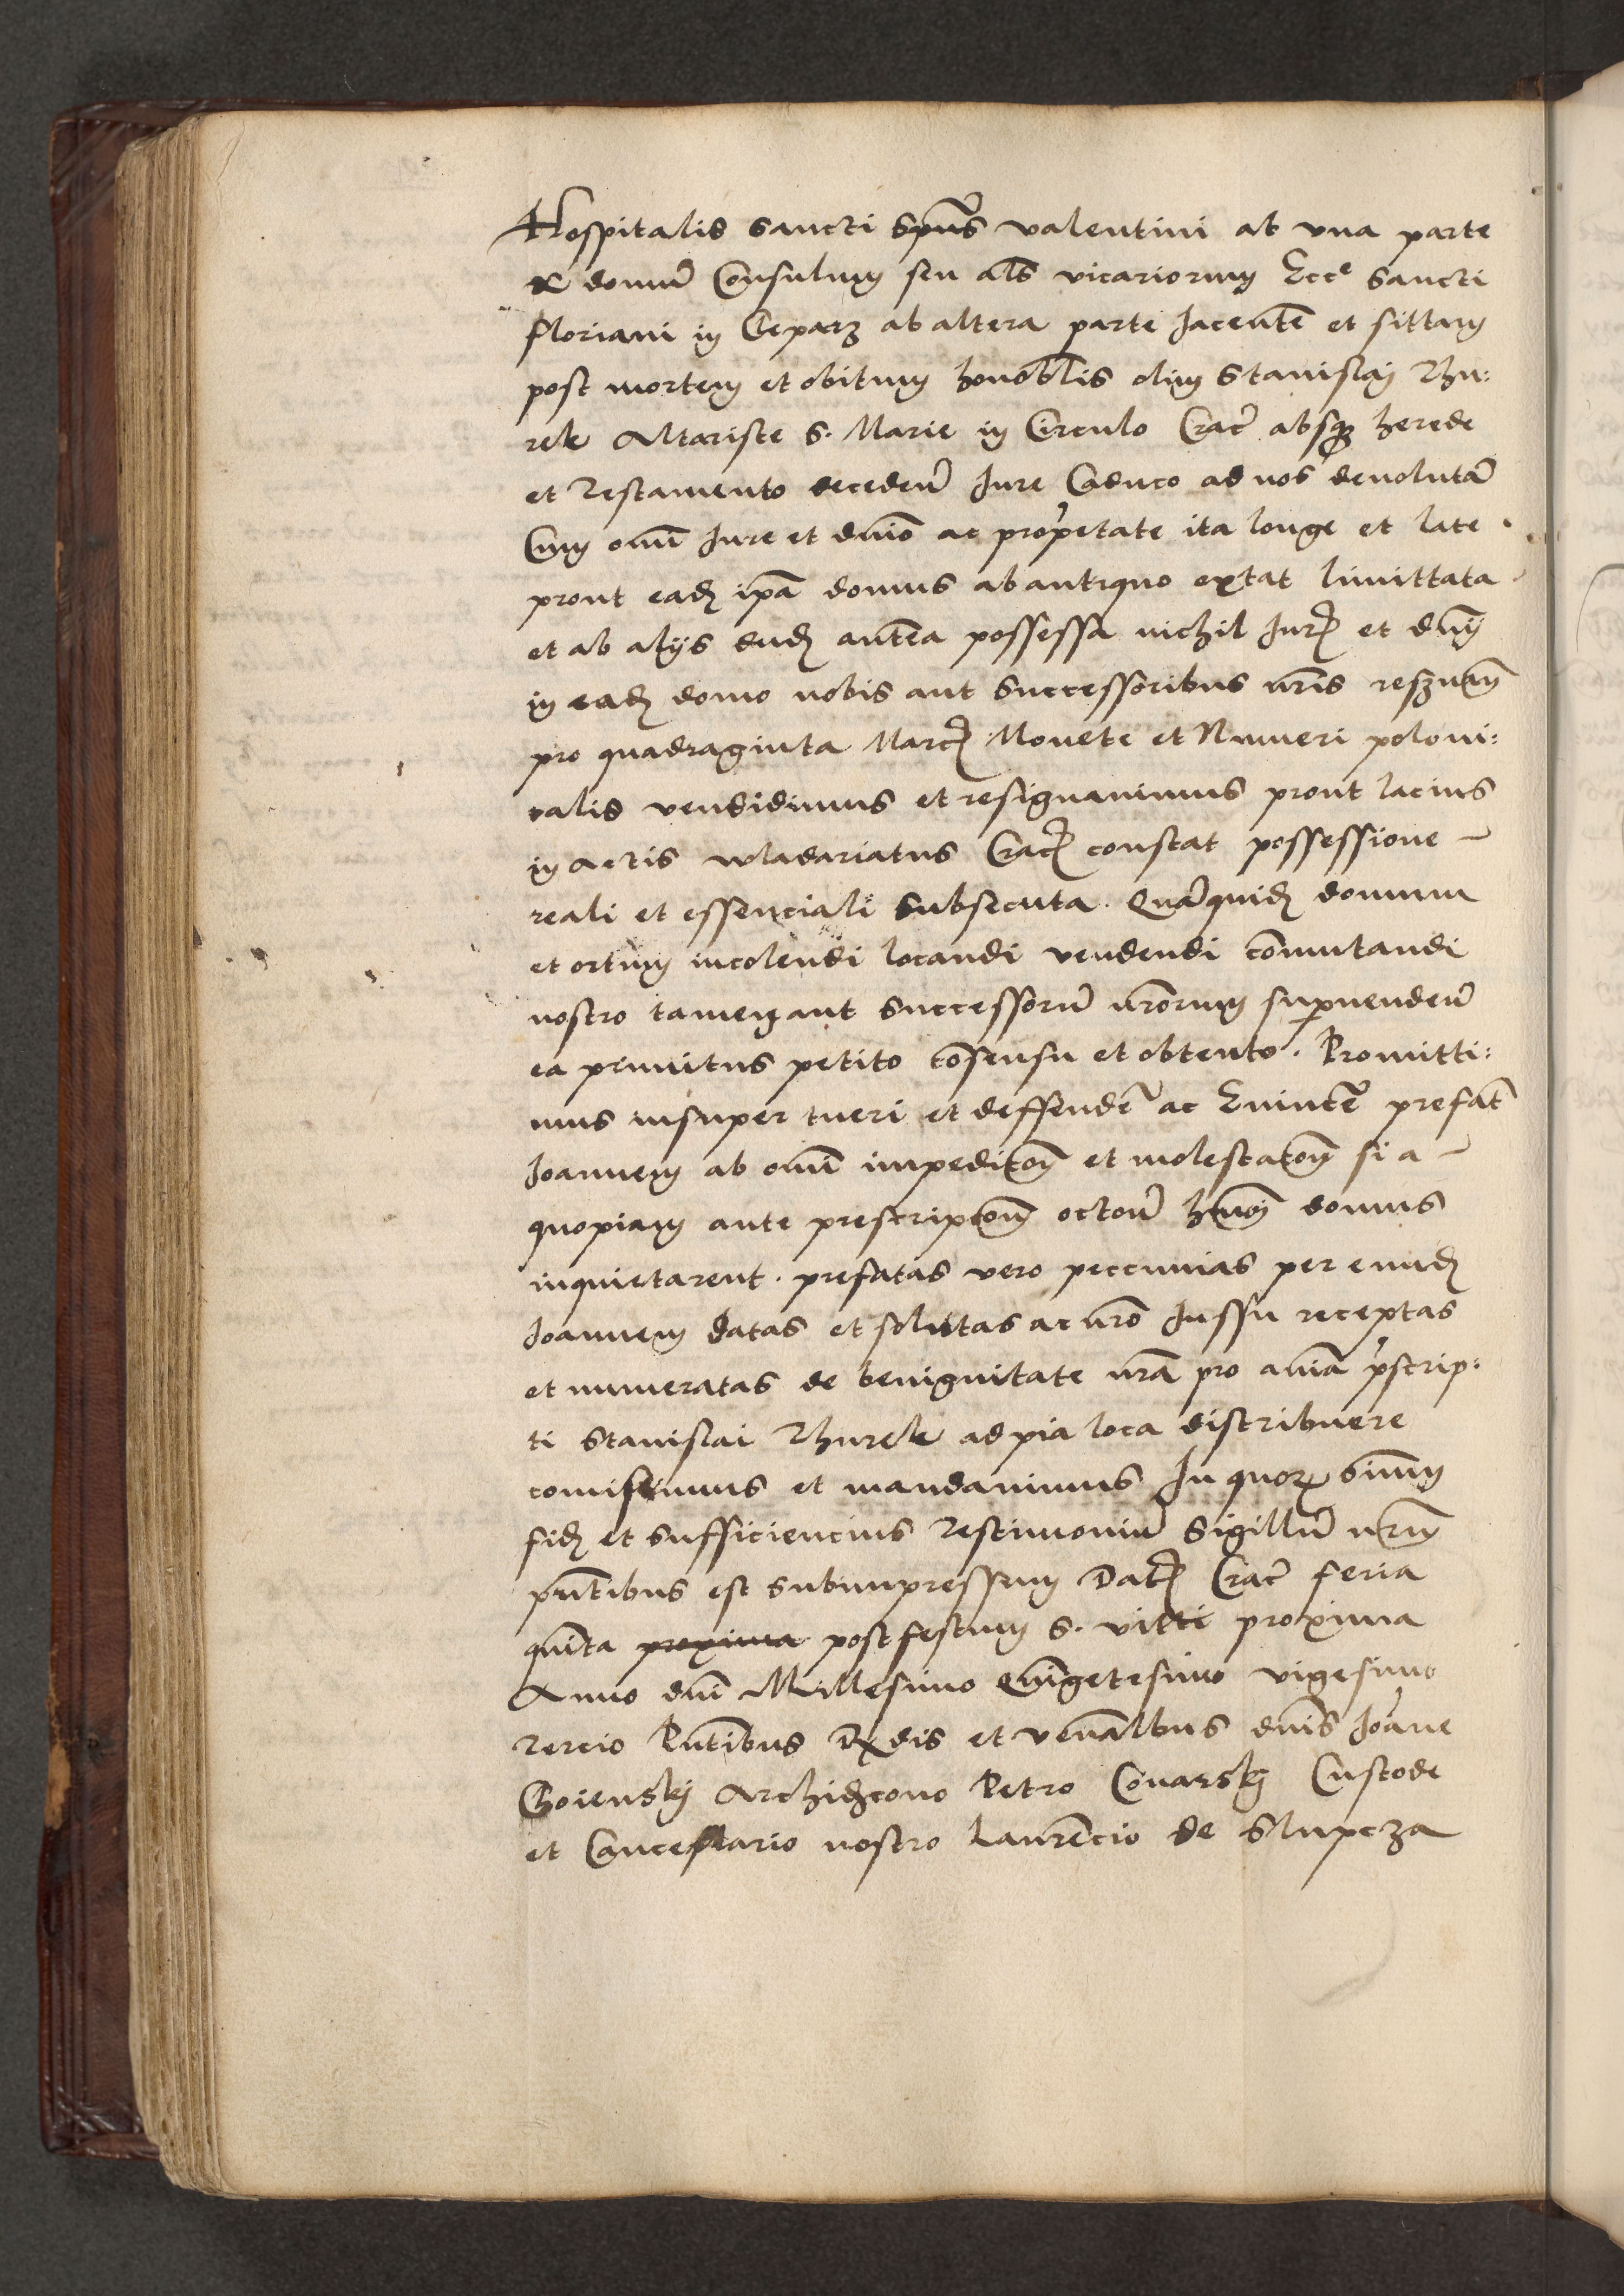 Hospitalis sancti spūs valentini ab vna parte
et domū Consulum seu als vicariorum Ecce sancti
floriani in Cleparz ab altera parte Jacentē et sittam
post mortem et obitum honobilis olim Stanislaj Thu:
rek Altariste S. Marie in Circulo Crac absq̨ herede
et Testamento decedeñ Jure Caduco ad nos deuolutā
Cum omī Jure et dnīo ac prop̱etate ita longe et late
prout eadȩ ipā domus ab antiquo extat limittata
et ab alijs dudȩ antea possessa nichil Jurȩ et dnīj
in eadȩ domo nobis aut successoribus nrīs reseruan̄
pro quadraginta Marcȩ Monete et Numeri poloni:
calis vendidimus et resignauimus prout lacius
in actis wladariatus Cracȩ constat possessione
reali et essenciali subsecuta. Quāquidȩ domum
et ortum incolendi locandi vendendi cōmutandi
nostro tamen aut successorū nrōrum superuendeñ
ea primitus petito cōsensu et obtento. Promitti:
mus insuper tueri et deffendē ac Euincē prefat̄
Joannem ab omī impeditōn̄ et molestatōn̄ si a
quopiam ante prescriptōn̄ octoū hmōi domus
inquietarent. prefatas vero peccunias per eundȩ
Joannem datas et solutas ac nrō Jussu receptas
et numeratas de benignitate nrā pro aniā p̄scrip:
ti Stanislai Thurek ad pia loca distribuere
comisimus et mandauimus Jn quorȩ omnīum
fidȩ et sufficiencius Testimoniū Sigillū nrūm
pn̄tibus est subimpressum Datȩ Crac feria
quīta proxima post festum S. Vitti proxima
Anno dnī Millesimo Quīgetesimo vigesimo
Tercio Pn̄tibus Rdis et venālbus dnīs Joāne
Choienskj Archidȩcono Petro Conarskj Custode
et Cancellario nostro Laurēcio de Slupcza